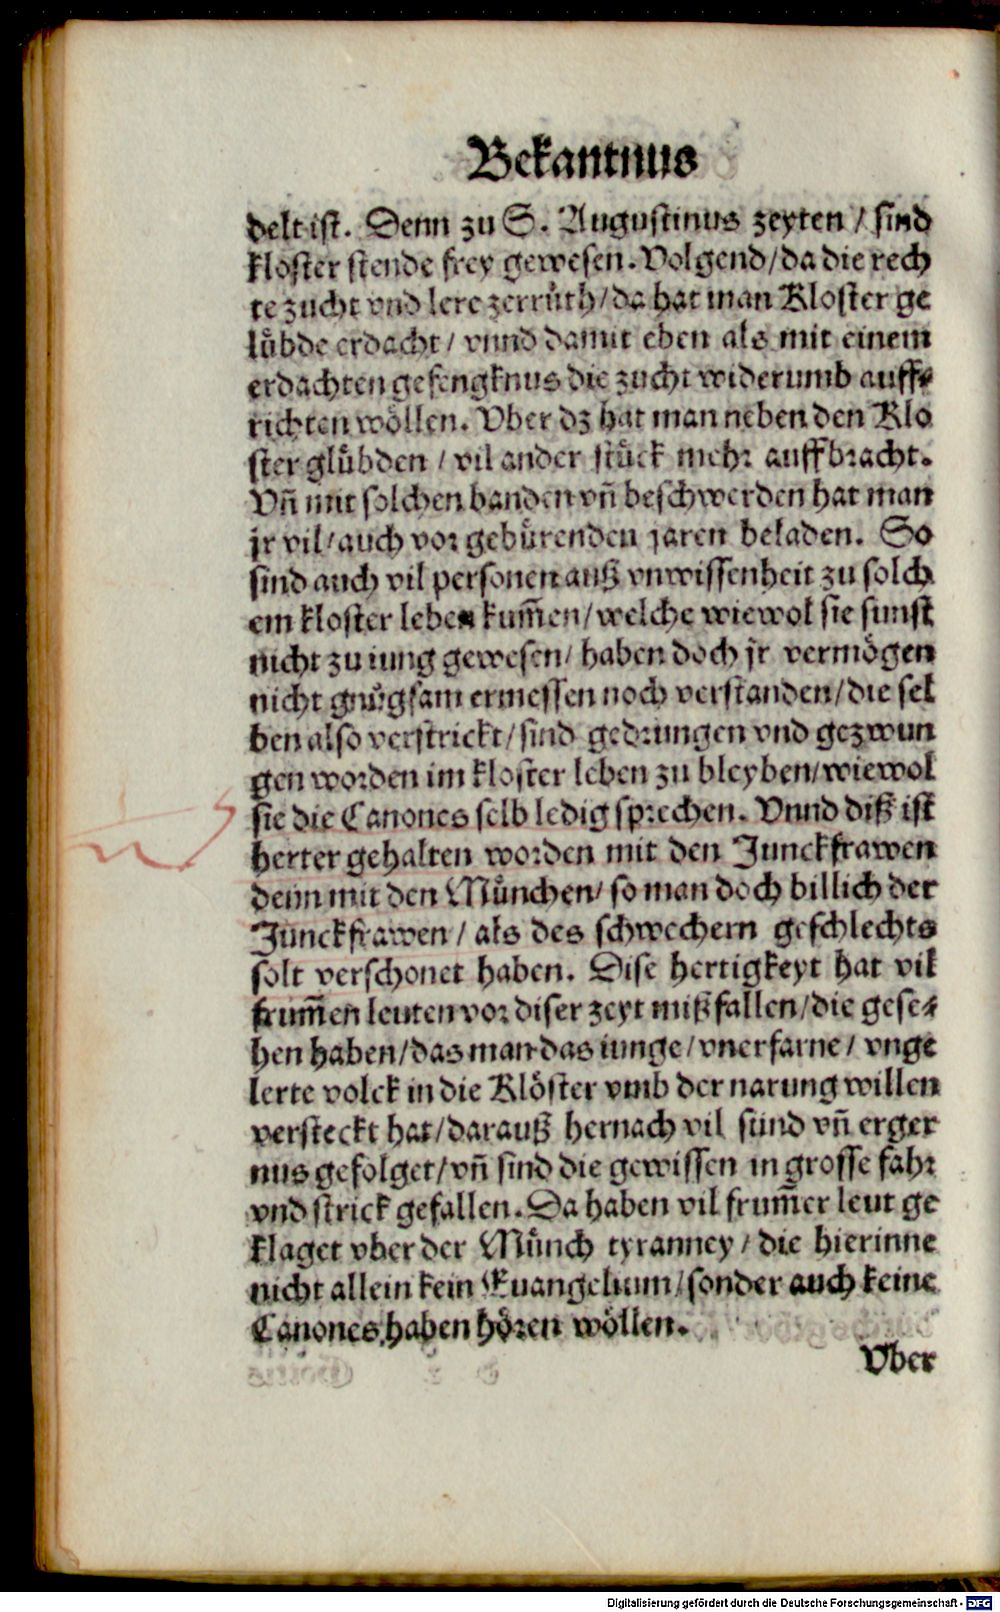 Bekantnus
delt ist. Denn zu S. Augustinus zeyten / sind
kloster stende frey gewesen. Volgend/da die rech
te zucht vnd lere zerrüth/da hat man Kloster ge
lübde erdacht / vnnd damit eben als mit einem
erdachten gefengknus die zucht widerumb auff⸗
richten wöllen. Vber dz hat man neben den Klo
ster glübden / vil ander stück mehr auffbracht.
Vñ mit solchen banden vñ beschwerden hat man
jr vil/auch vor gebürenden jaren beladen. So
sind auch vil personen auß vnwissenheit zu solch
em kloster leben kum̄en/welche wiewol sie sunst
nicht zu iung gewesen/ haben doch jr vermögen
nicht gnůgsam ermessen noch verstanden/die sel
ben also verstrickt/sind gedrungen vnd gezwun
gen worden im kloster leben zu bleyben/wiewol
sie die Canones selb ledig sprechen. Vnnd diß ist
herter gehalten worden mit den Junckfrawen
denn mit den München/ so man doch billich der
Junckfrawen / als des schwechern geschlechts
solt verschonet haben. Dise hertigkeyt hat vil
frum̄en leuten vor diser zeyt mißfallen/die gese⸗
hen haben/das man das iunge/vnerfarne/ vnge
lerte volck in die Klöster vmb der narung willen
versteckt hat/darauß hernach vil sünd vñ erger
nus gefolget/vñ sind die gewissen in grosse fahr
vnd strick gefallen. Da haben vil frum̄er leut ge
klaget vber der Münch tyranney / die hierinne
nicht allein kein Euangelium/sonder auch keine
Canones haben hören wöllen.
Vber
Digitalisierung gefördert durch die Deutsche Forschungsgemeinschaft - DFG